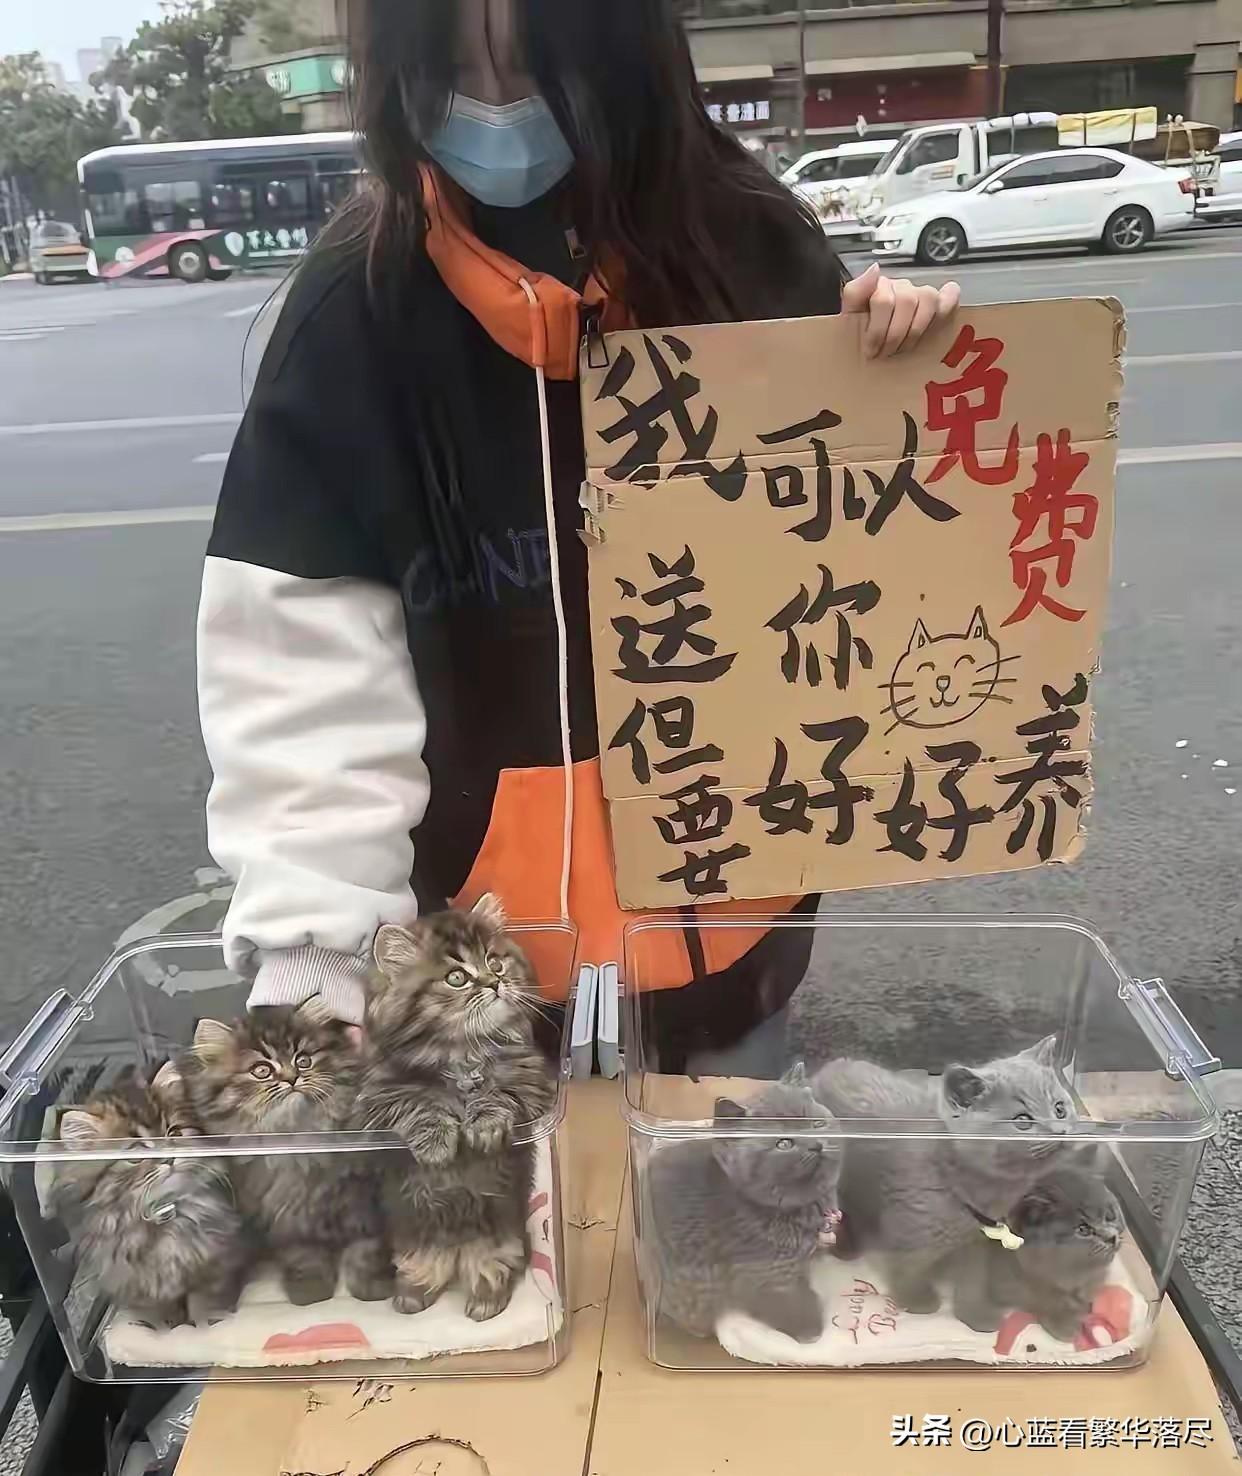 我可以免费
送你
但要好好养
Lucky
Be
头条 @心蓝看繁华落尽